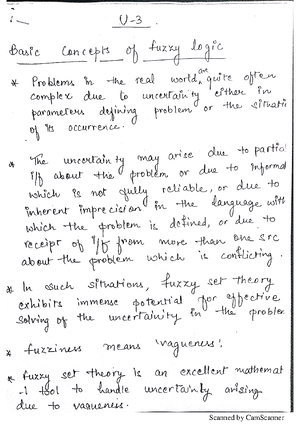 U-3
Basic Concepts of fuzzy logic
* Problems in the real world are quite often
complex due to uncertainty either in
parameters defining problem or the situati
of its occurrence.
* The uncertainty may arise due to partia
i/f about the problem or due to informat
which is not fully reliable, or due to
inherent imprecision in the language with
which the problem is defined, or due to
receipt of i/f from more than one src
about the problem which is conflicting.
* In such situations, fuzzy set theory
exhibits immense potential for effective
solving of the uncertainity in the problem
* fuzziness means 'vagueness'.
* fuzzy set theory is an excellent mathemat
-l tool to handle uncertainty arising
due to vagueness.
Scanned by CamScanner